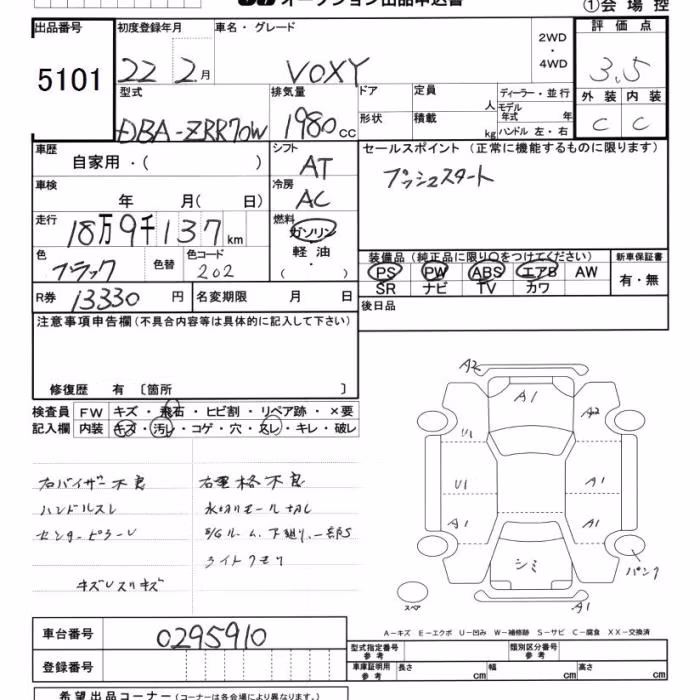 オークション出品申込書
①会場控
出品番号 初度登録年月 車名・グレード 2WD・4WD 評価点
5101 22 2月 VOXY 3.5
型式 排気量 ドア 定員 人 ディーラー・並行 外装 内装
DBA-ZRR70W 1980cc 形状 積載 kg モデル年式 年 ハンドル 左・右 C C
車歴 自家用・( ) シフト AT セールスポイント (正常に機能するものに限ります)
プッシュスタート
車検 年 月( 日) 冷房 AC
走行 18万9千137km 燃料 ガソリン
軽油
・( )
色 ブラック 色替 色コード 202
装備品 (純正品に限り○をつけてください) 新車保証書
PS PW ABS エアB AW 有・無
SR ナビ TV カワ
R券 13330円 名変期限 月 日 後日品
注意事項申告欄 (不具合内容等は具体的に記入して下さい)
修復歴 有 〔箇所 〕
検査員 FW キズ・飛石・ヒビ割・リペア跡・×要
記入欄 内装 キズ・汚レ・コゲ・穴・スレ・キレ・破レ
右バイザー不良 右電格不良
ハンドルスレ 水切りモール
センターピラーU
ライトクモリ
キズUスリキズ
A2
A1
A2
U1
U1 A1
A1 A1
シミ
パンク
スペア
A1
A-キズ E-エクボ U-凹み W-補修跡 S-サビ C-腐食 XX-交換済
車台番号 0295910
登録番号
型式指定番号 参考 類別区分番号 参考
車庫証明用 参考 長さ cm 幅 cm 高さ cm
希望出品コーナー (コーナーは各会場により異なります。)